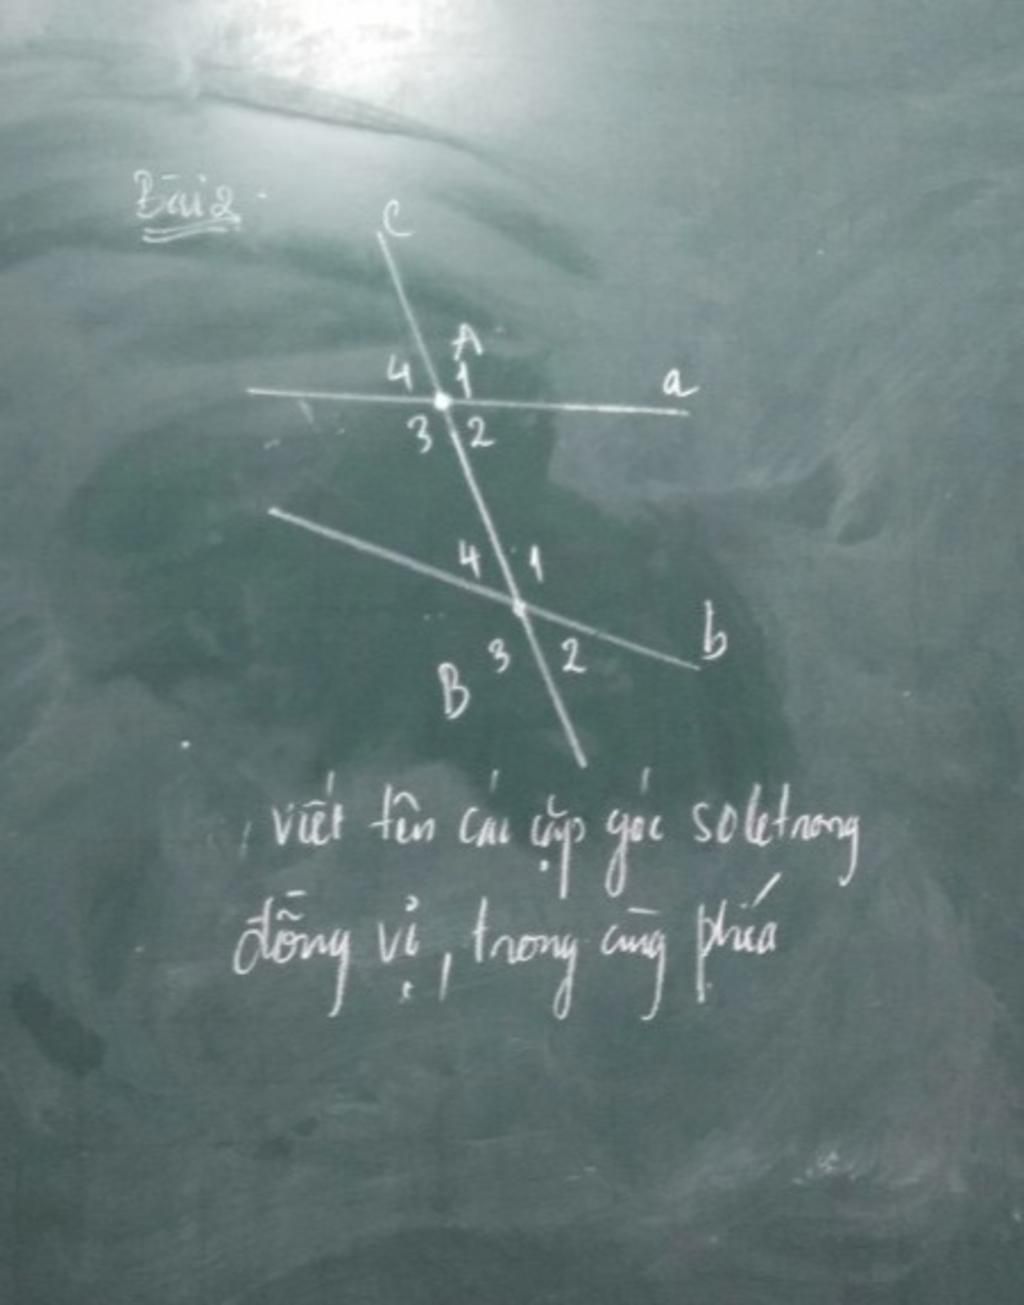 Bài 2
c
A
4 1
a
3 2
4 1
b
3 2
B
viết tên các cặp góc so le trong
đồng vị, trong cùng phía